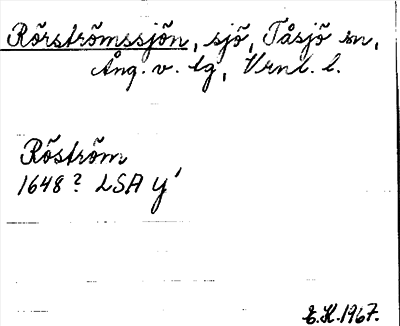 Rörströmssjön, sjö, Tåsjö sn,
Ång. v. lg, Vrnl. l.
Röström
1648? LSA y'
E.H.1967.